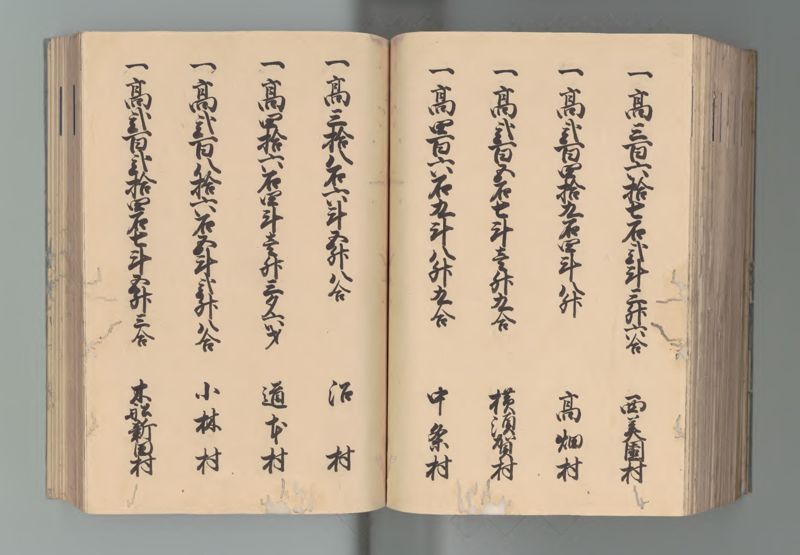 一高三百六拾七石弐斗三升六合 西美薗村
一高弐百四拾九石四斗八升 高畑村
一高弐百五石七斗壱升九合 横須賀村
一高四百六石九斗八升九合 中条村
一高三拾八石六斗五升八合 沼村
一高四拾六石四斗壱升三夕六才 道本村
一高弐百八拾六石五斗弐升八合 小林村
一高弐百弐拾四石七斗五升三合 木舩新田村